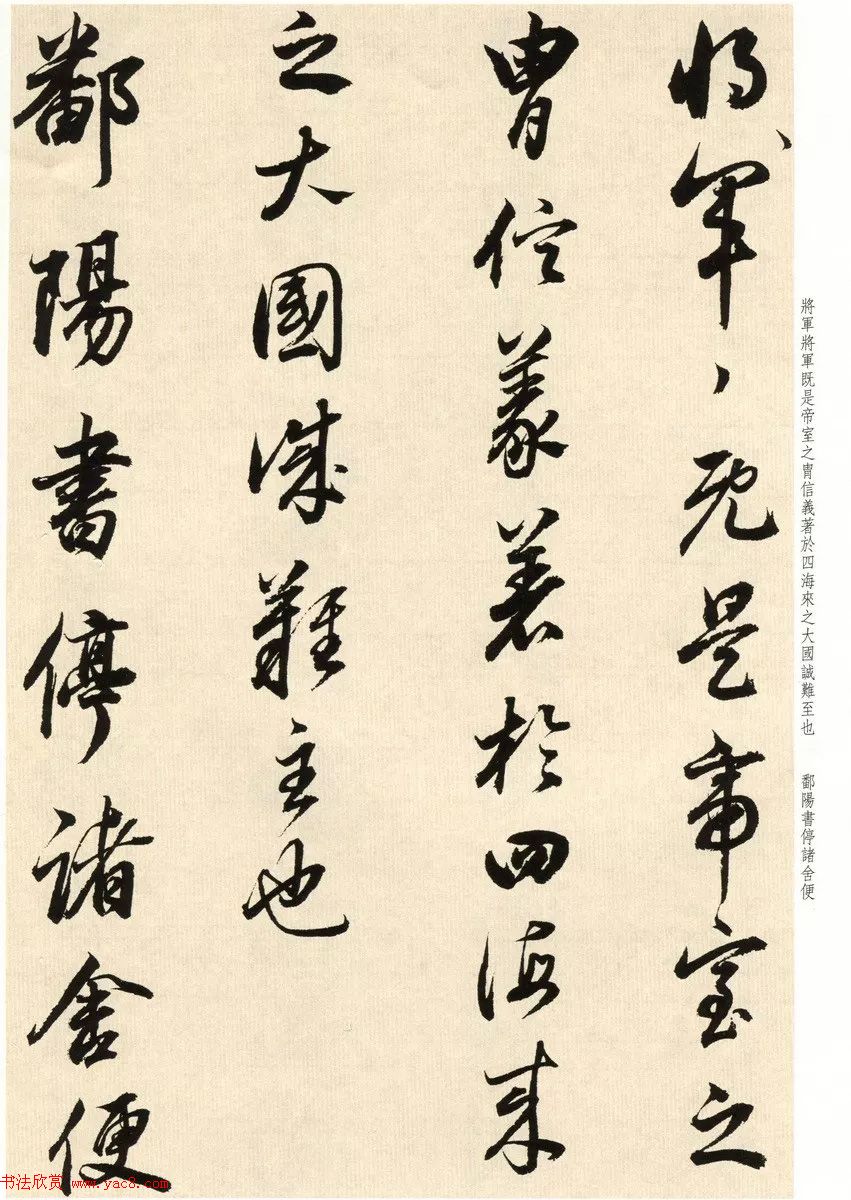 将軍〻既是帝室之
胄信義著於四海来
之大國誠難至也
鄱陽書停諸舍便
將軍將軍既是帝室之胄信義著於四海來之大國誠難至也　鄱陽書停諸舍便
书法欣赏 www.yac8.com